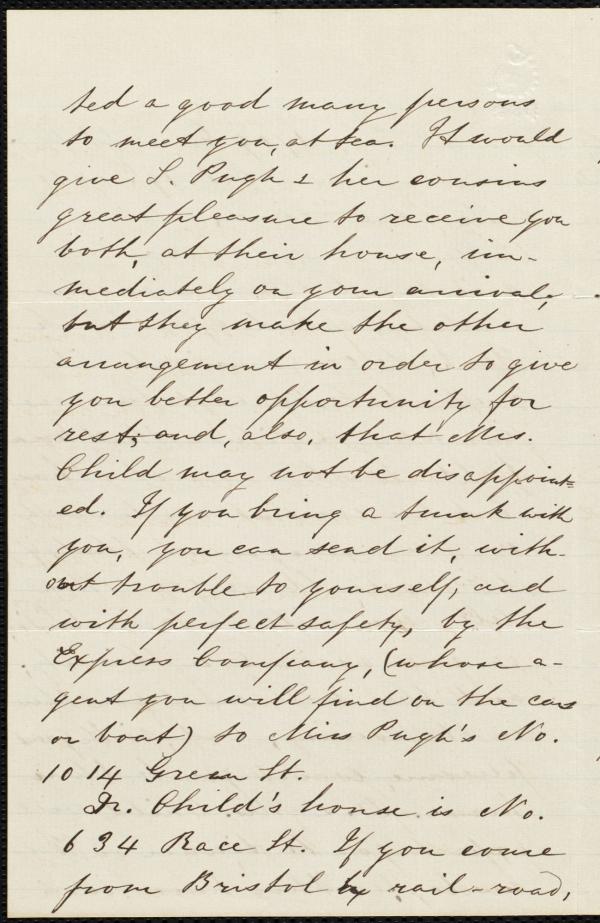 ted a good many persons
to meet you, at tea. It would
give S. Pugh & her cousins
great pleasure to receive you
both, at their house, im-
mediately on your arrival,
but they make the other
arrangement in order to give
you better opportunity for
rest; and, also, that Mrs.
Child may not be disappoint=
ed. If you bring a trunk with
you, you can send it, with-
out trouble to yourself, and
with perfect safety, by the
Express Company, (whose a-
gent you will find on the cars
or boat) to Miss Pugh's No.
1014 Green St.
Dr. Child's house is No.
634 Race St. If you come
from Bristol by rail-road,